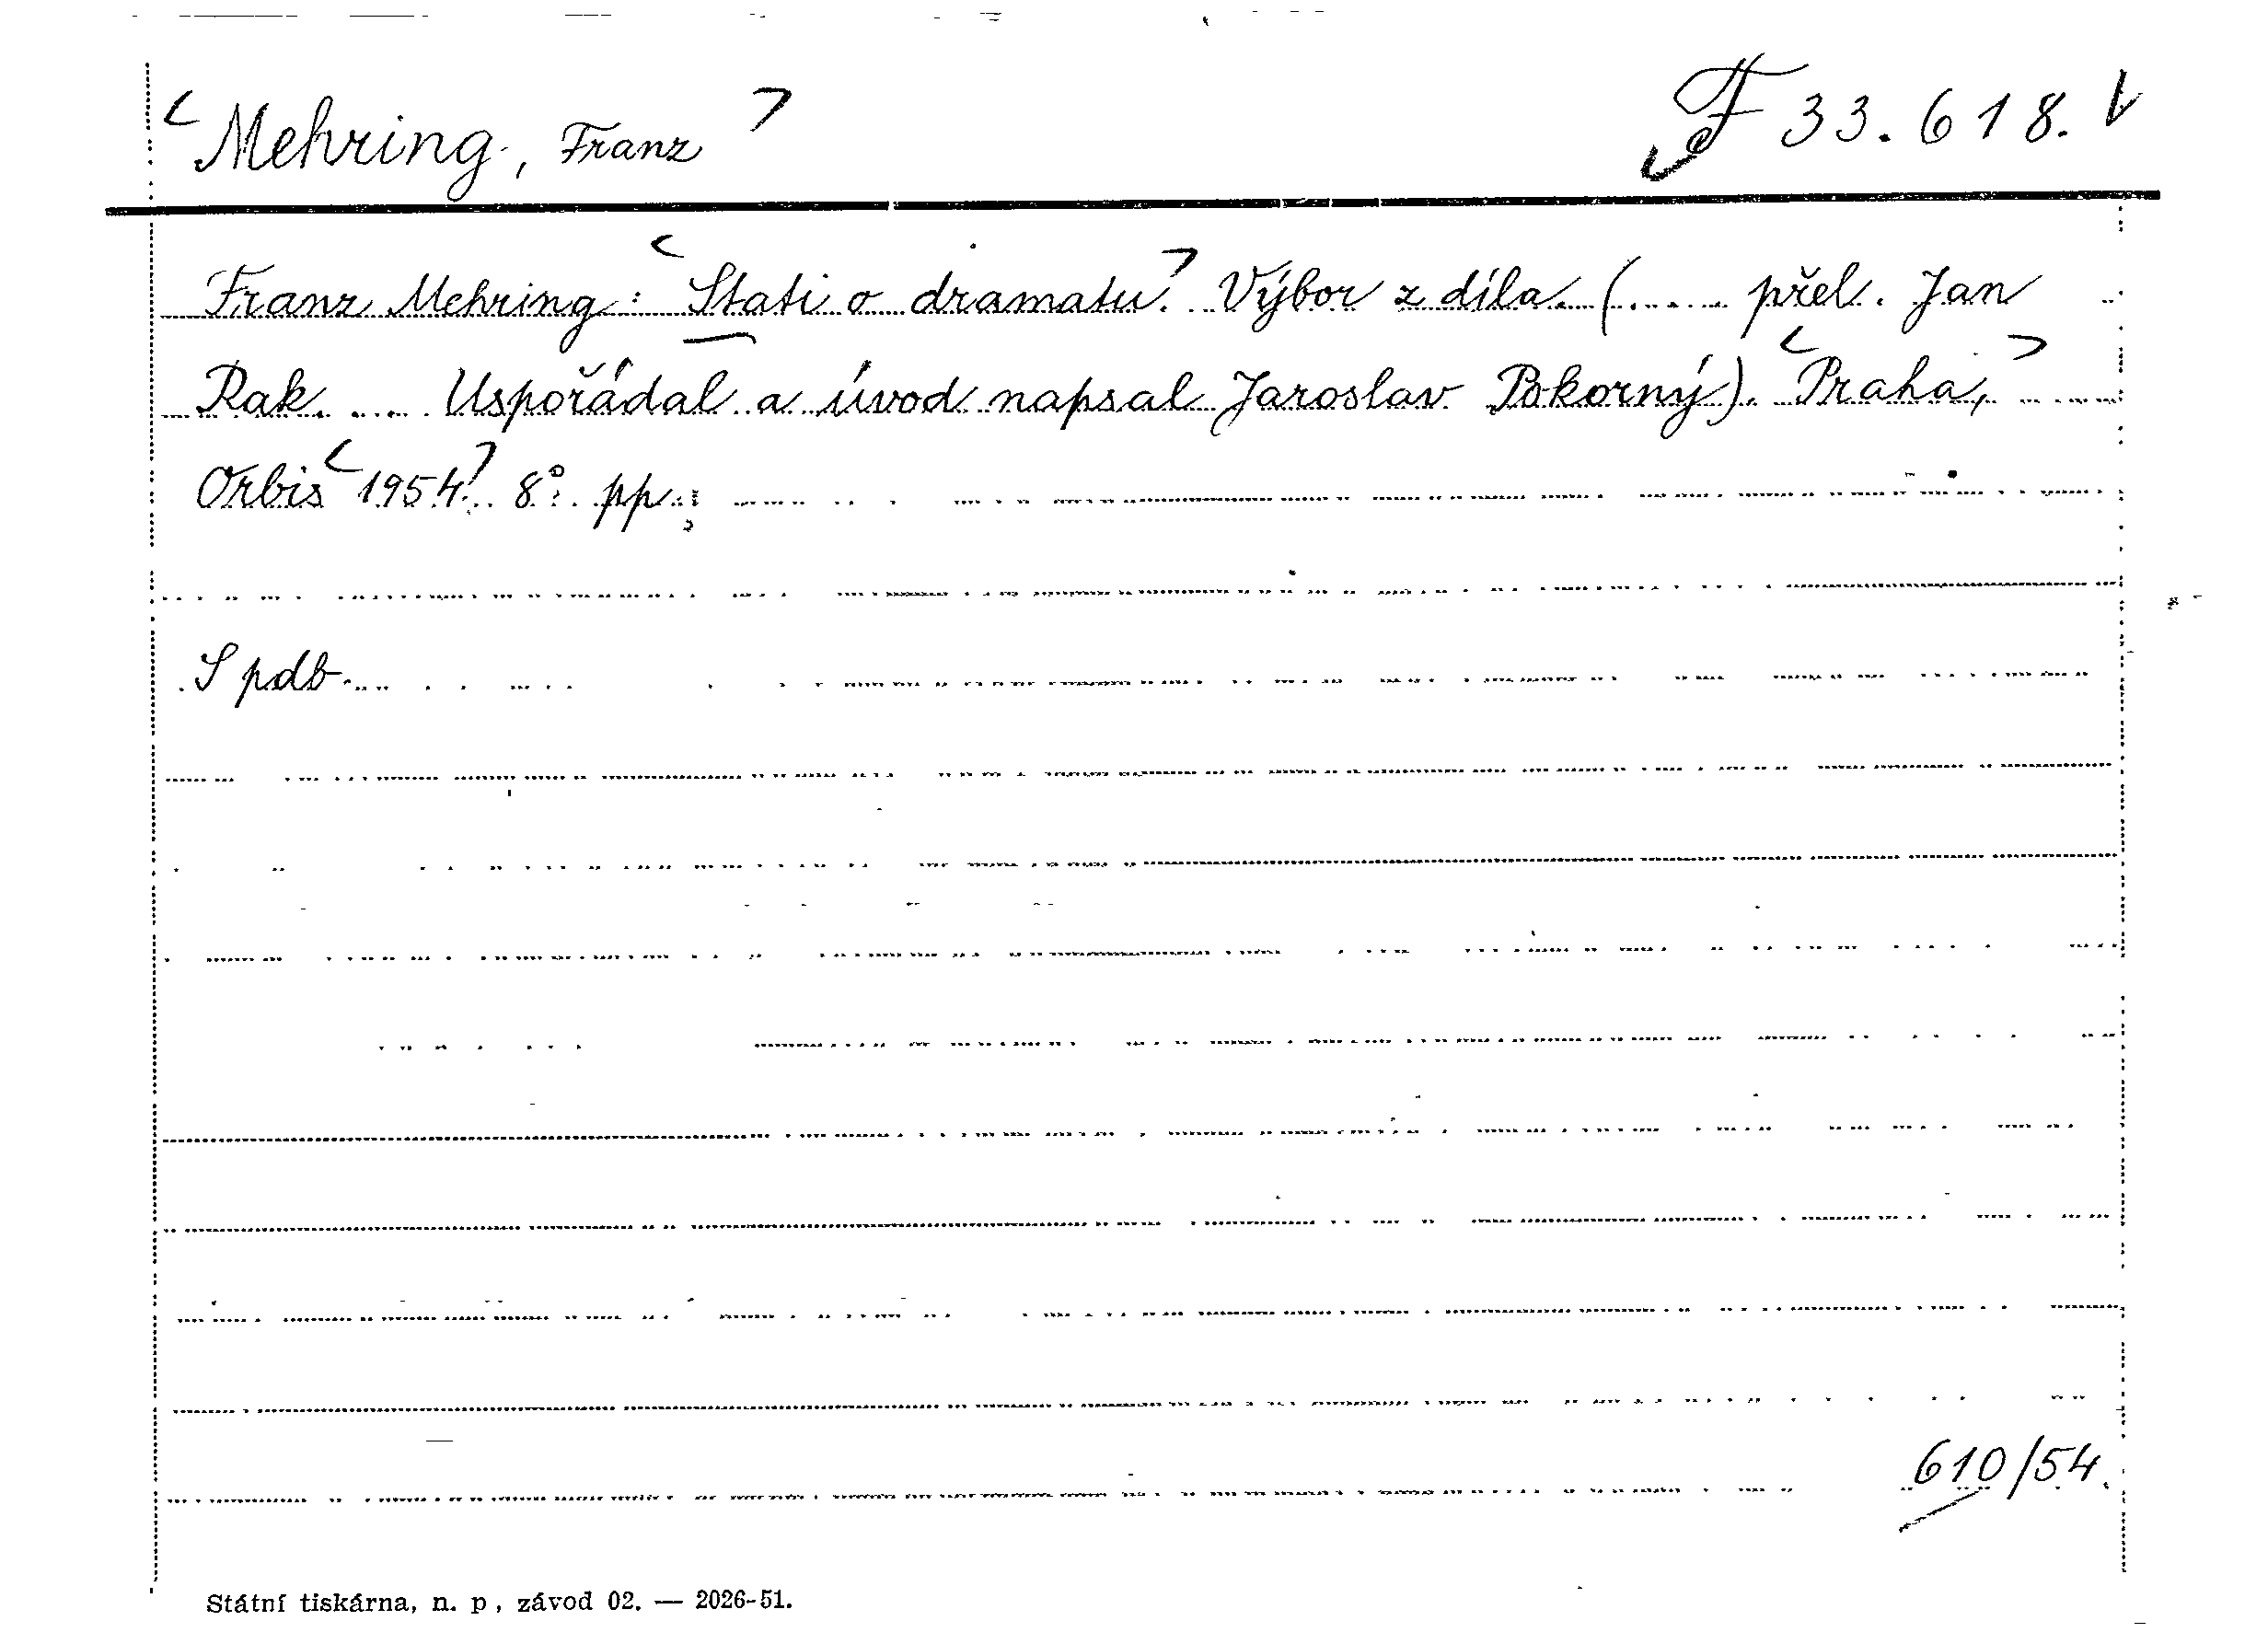 <Mehring, Franz> F 33.618.
Franz Mehring: <Stati o dramatu.> Výbor z díla. (..... přel. Jan
Rak. ... Uspořádal a úvod napsal Jaroslav Pokorný). <Praha,>
Orbis <1954.> 8°. pp.;
S pdb.
610/54.
Státní tiskárna, n. p., závod 02. — 2026-51.